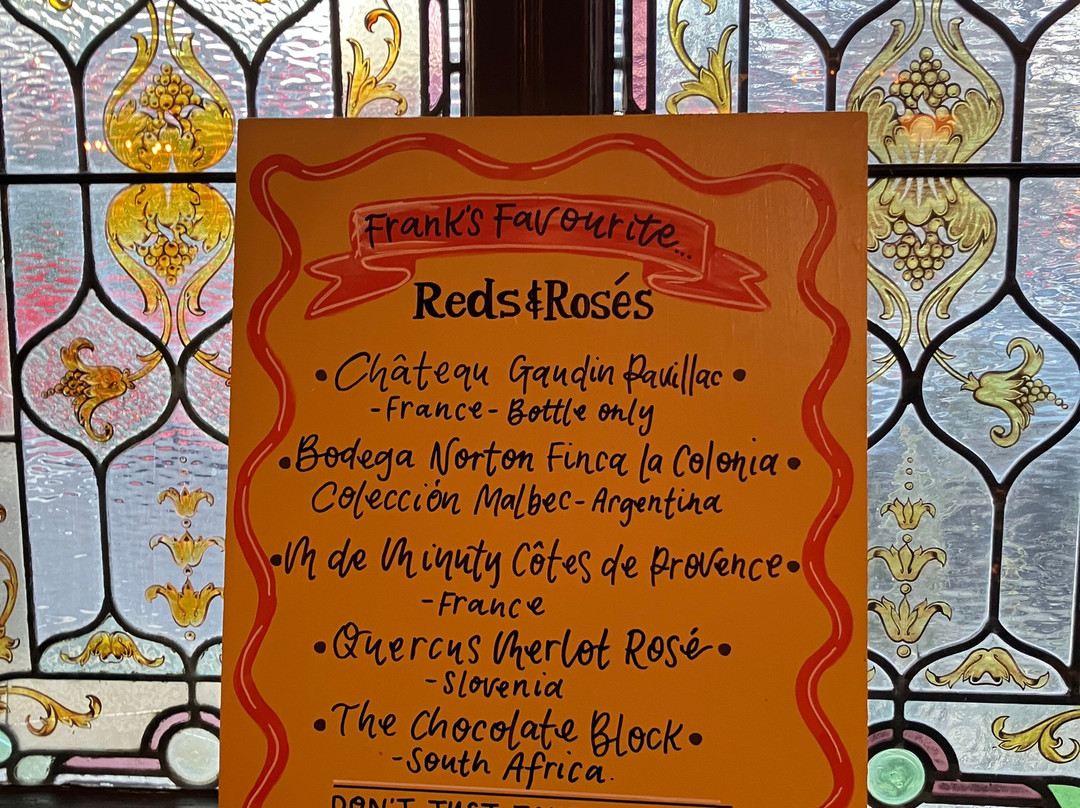 Frank's Favourite...
Reds & Rosés
• Château Gaudin Pavillac •
- France - Bottle only
• Bodega Norton Finca la Colonia •
Colección Malbec - Argentina
• M de Minuty Côtes de Provence •
- France
• Quercus Merlot Rosé •
- Slovenia
• The Chocolate Block •
- South Africa.
DON'T JUST